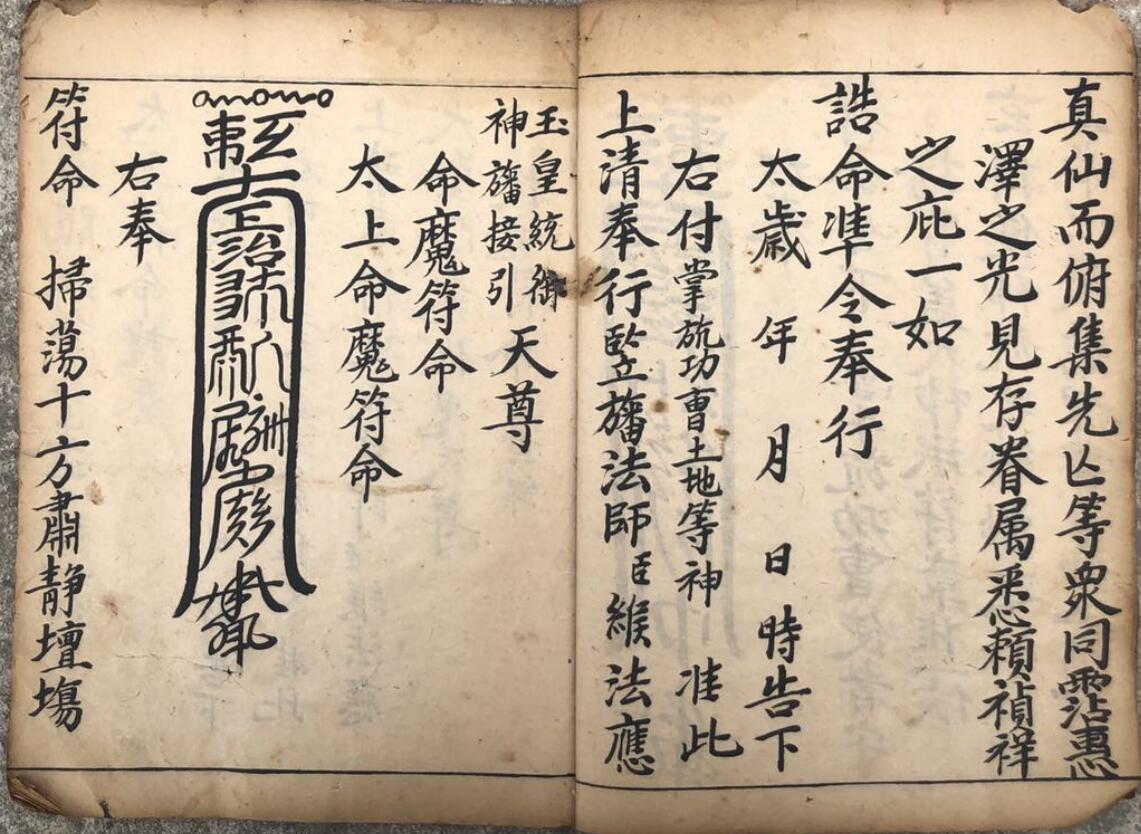 真仙而俯集先亡等衆同霑惠
澤之光見存眷属悉賴禎祥
之庇一如
誥命準令奉行
太歲 年 月 日 時告下
右付掌旐功曹土地等神 准此
上清奉行監立旛法師臣緱法應
玉皇統御
神旛接引 天尊
命魔符命
太上命魔符命
右奉
符命 掃蕩十方肅静壇場